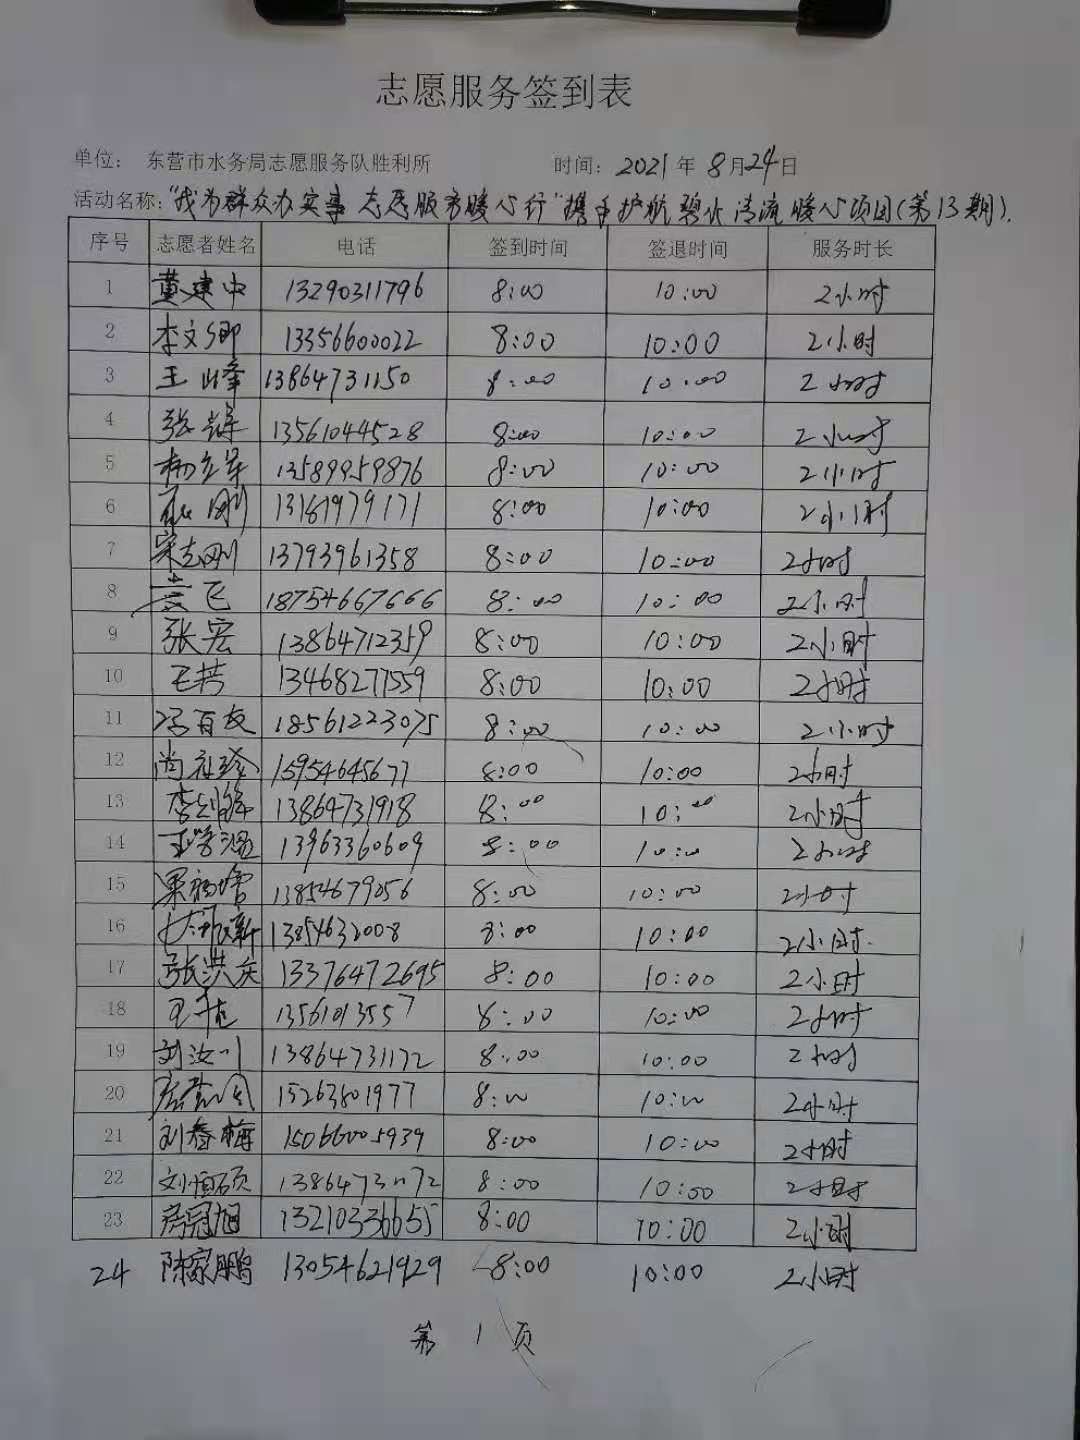 志愿服务签到表
单位： 东营市水务局志愿服务队胜利所 时间：2021年8月24日
活动名称：“我为群众办实事 志愿服务暖心行”携手护航碧水清流暖心项目（第13期）.
序号 志愿者姓名 电话 签到时间 签退时间 服务时长
1 董建中 13290311796 8:00 10:00 2小时
2 李文卿 13356600022 8:00 10:00 2小时
3 王峰 13864731150 8:00 10:00 2小时
4 张辉 13561044528 8:00 10:00 2小时
5 杨立军 13589959876 8:00 10:00 2小时
6 刚 13181979171 8:00 10:00 2小时
7 宋志刚 13793961358 8:00 10:00 2小时
8 飞 18754667666 8:00 10:00 2小时
9 张宏 13864712359 8:00 10:00 2小时
10 王芳 13468277559 8:00 10:00 2小时
11 冯百友 18561223075 8:00 10:00 2小时
12 尚在珍 15954645677 8:00 10:00 2小时
13 李 13864731918 8:00 10:00 2小时
14 13963360609 8:00 10:00 2小时
15 梁 13854679056 8:00 10:00 2小时
16 新 13854632008 8:00 10:00 2小时.
17 张洪庆 13376472695 8:00 10:00 2小时
18 王 13561013557 8:00 10:00 2小时
19 刘汝川 13864731172 8:00 10:00 2小时
20 15263801977 8:00 10:00 2小时
21 刘春梅 15066005939 8:00 10:00 2小时
22 刘恒硕 13864731172 8:00 10:00 2小时
23 房冠旭 13210336655 8:00 10:00 2小时
24 陈家鹏 13054621929 8:00 10:00 2小时
第 1 页